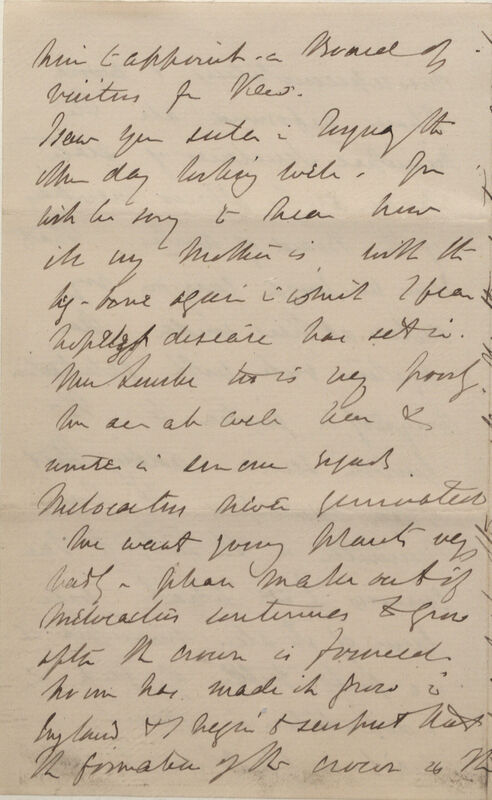 him to appoint a Board of
visitors for Kew.
I saw your sister in the
other day looking well. You
will be sorry to hear how
ill my Mother is with the
leg-bone again in which I fear
hopeless disease has set in.
Mrs is very poorly.
We are all well here &
unite in sincere regards
Melocactus never germinated
We want young plants very
badly - please make out if
Melocactus continues to grow
after the crown is formed.
no one has made it grow in
England & I begin to suspect that
the formation of the crown is the